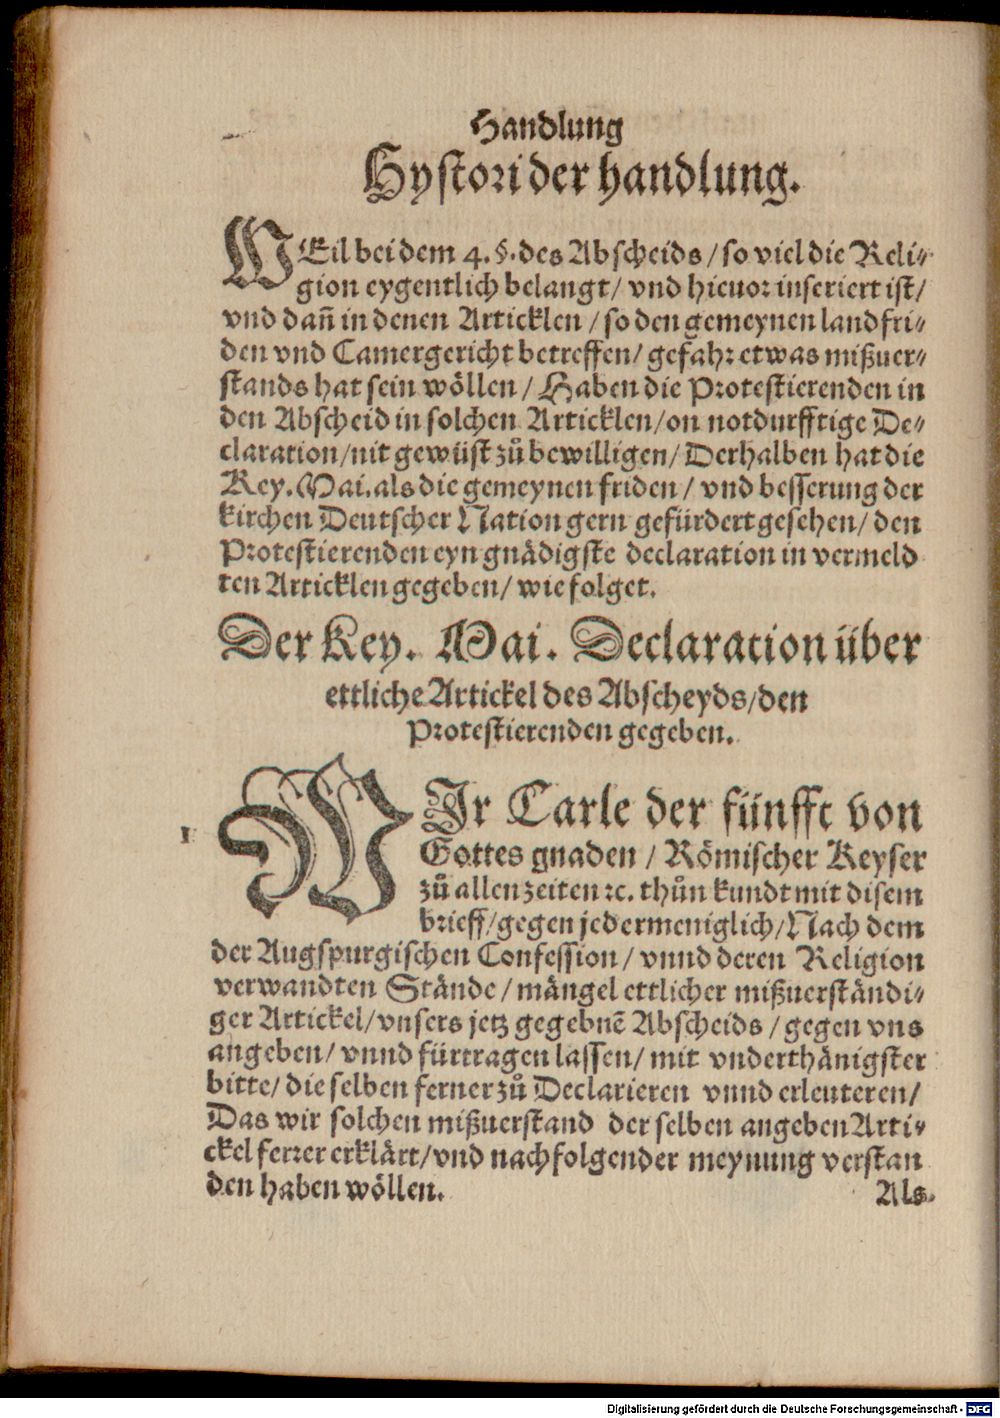 Handlung
Hystori der handlung.
WEil bei dem 4. §. des Abscheids / so viel die Reli⸗
gion eygentlich belangt / vnd hieuor inseriert ist /
vnd dañ in denen Articklen / so den gemeynen landfri⸗
den vnd Camergericht betreffen / gefahr etwas mißuer⸗
stands hat sein wöllen / Haben die Protestierenden in
den Abscheid in solchen Articklen / on notdurfftige De⸗
claration / nit gewüst zů bewilligen / Derhalben hat die
Key. Mai. als die gemeynen friden / vnd besserung der
kirchen Deutscher Nation gern gefürdert gesehen / den
Protestierenden eyn gnädigste declaration in vermeld
ten Articklen gegeben / wie folget.
Der Key. Mai. Declaration über
ettliche Artickel des Abscheyds / den
Protestierenden gegeben.
WJr Carle der fünfft von
Gottes gnaden / Römischer Keyser
zů allen zeiten ꝛc. thůn kundt mit disem
brieff / gegen jedermeniglich / Nach dem
der Augspurgischen Confession / vnnd deren Religion
verwandten Stände / mängel ettlicher mißuerständi⸗
ger Artickel / vnsers jetz gegebnē Abscheids / gegen vns
angeben / vnnd fürtragen lassen / mit vnderthänigster
bitte / die selben ferner zů Declarieren vnnd erleuteren /
Das wir solchen mißuerstand der selben angeben Arti⸗
ckel ferrer erklärt / vnd nachfolgender meynung verstan
den haben wöllen.
Als
Digitalisierung gefördert durch die Deutsche Forschungsgemeinschaft - DFG